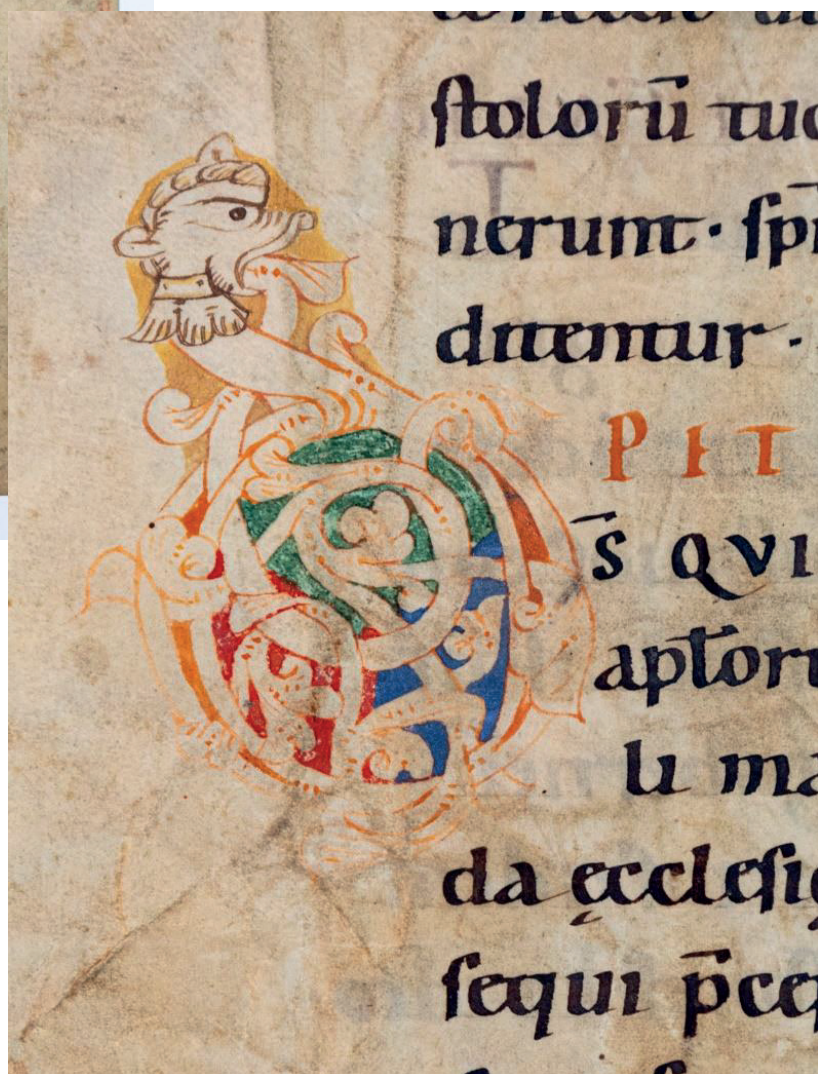 ſtolorū tuo
nerunt · ſp̄i
ditentur ·
PIT
D̄S QVI
apl̄oru
li ma
da ęccleſię
ſequi p̄cep